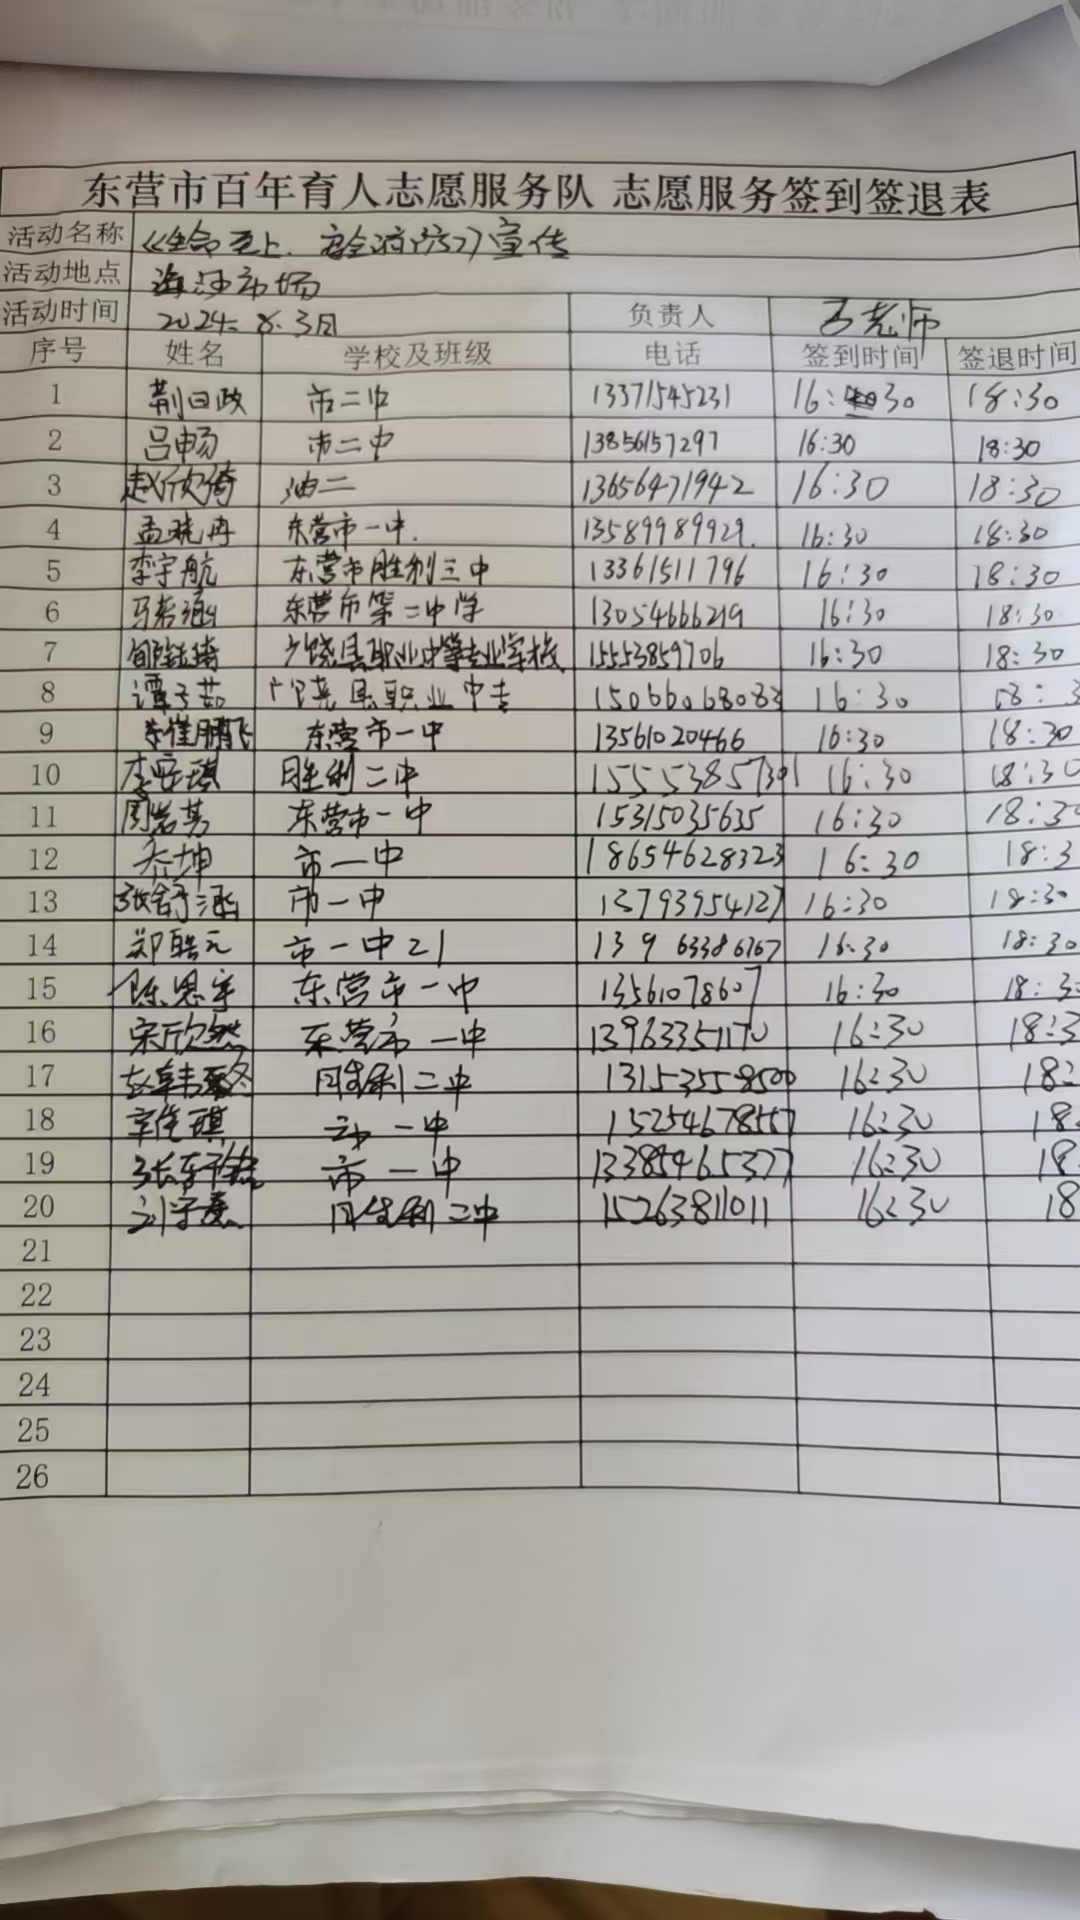 东营市百年育人志愿服务队 志愿服务签到签退表
活动名称 《生命至上.安全消防》宣传
活动地点 海河市场
活动时间 2024.8.3日 负责人 老师
序号 姓名 学校及班级 电话 签到时间 签退时间
1 荆日政 市二中 13371545231 16:30 18:30
2 吕畅 市二中 13856157297 16:30 18:30
3 赵欣绮 油二 13656471942 16:30 18:30
4 孟晓冉 东营市一中. 13589989929. 16:30 18:30
5 李宇航 东营市胜利三中 13361511796 16:30 18:30
6 马若涵 东营市第二中学 13054666219 16:30 18:30
7 广饶县职业中等专业学校 15553859706 16:30 18:30
8 谭子茹 广饶县职业中专 15066068083 16:30 18:3
9 崔鹏飞 东营市一中 13561020466 16:30 18:30
10 李安琪 胜利二中 15553857391 16:30 18:30
11 周若芳 东营市一中 15315035635 16:30 18:30
12 乔坤 市一中 18654628323 16:30 18:3
13 张舒涵 市一中 13793954127 16:30 18:30
14 郑皓元 市一中21 13963386767 16:30 18:30
15 陈恩宇 东营市一中 13561078607 16:30 18:30
16 宋欣然 东营市一中 13963351170 16:30 18:3
17 胜利二中 13153558500 16:30 18:
18 宰佳琪 一中 15254678557 16:30 18:
19 市一中 13385465377 16:30 18
20 胜利二中 15263811011 16:30 18
21
22
23
24
25
26